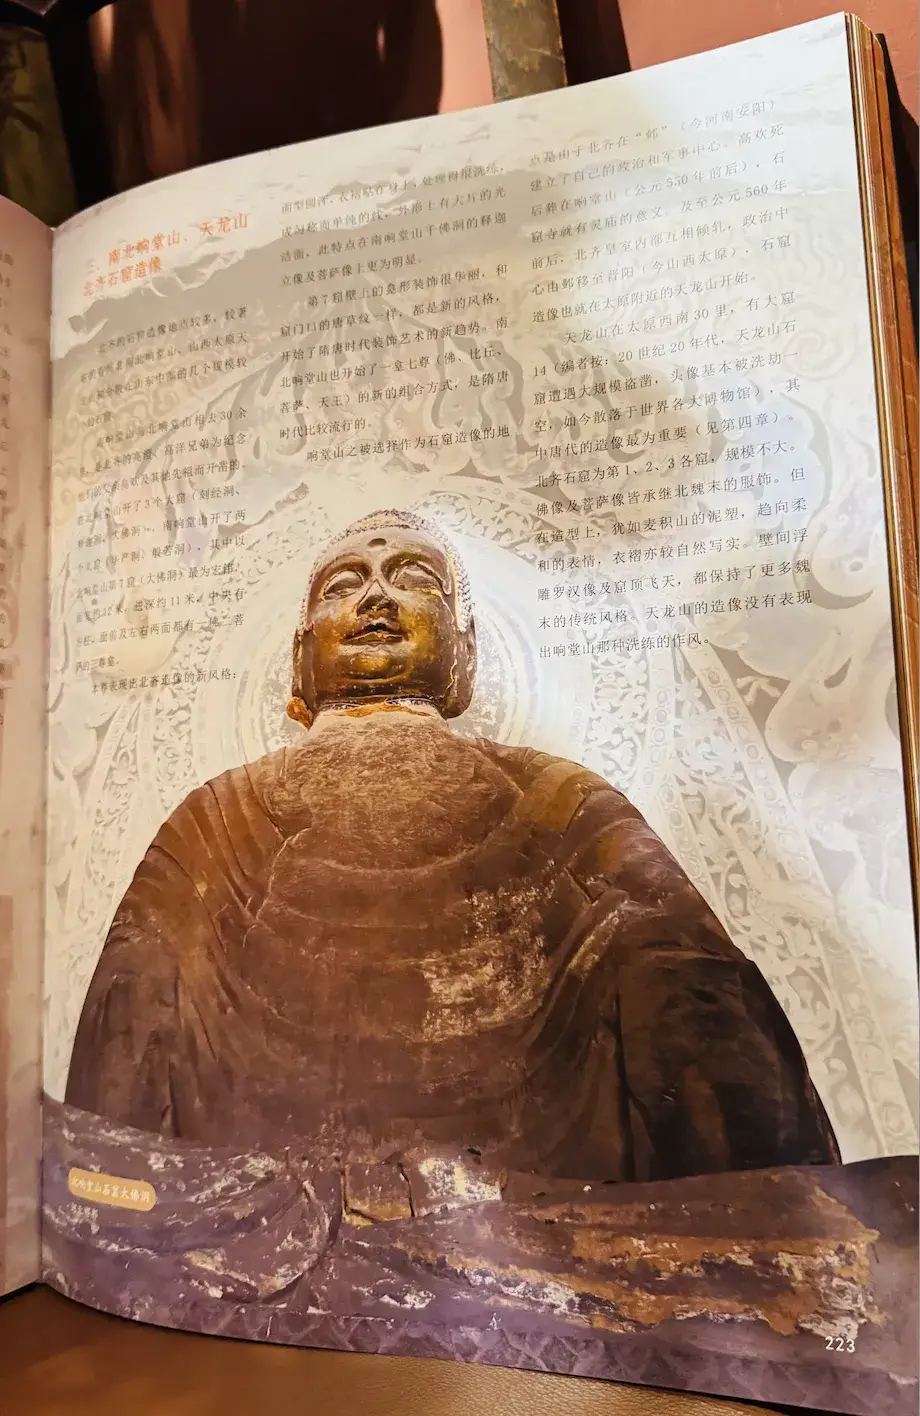 三、南北响堂山、天龙山
北齐石窟造像
北齐的石窟造像地点较多，较著
山西太原天
山东中部的几个规模较
南响堂山与北响堂山相去30余
是北齐的高澄、高洋兄弟为纪念
他们的父亲高欢及其他先祖而开凿的。
北响堂山开了3个大窟（刻经洞、
释迦洞、大佛洞）。南响堂山开了两
个大窟（华严洞、般若洞）。其中以
北响堂山第7窟（大佛洞）最为宏伟，
面宽约12米，进深约11米。中央有
方柱，面前及左右两面都有一佛二菩
萨的三尊龛。
本尊表现出北齐造像的新风格：
面型圆浑，衣褶贴在身上，处理得很洗练，
成匀称而单纯的线，外形上有大片的光
洁面，此特点在南响堂山千佛洞的释迦
立像及菩萨像上更为明显。
第7窟壁上的龛形装饰很华丽，和
窟门口的唐草纹一样，都是新的风格，
开始了隋唐时代装饰艺术的新趋势。南
北响堂山也开始了一龛七尊（佛、比丘、
菩萨、天王）的新的组合方式，是隋唐
时代比较流行的。
响堂山之被选择作为石窟造像的地
点是由于北齐在“邺”（今河南安阳）
建立了自己的政治和军事中心。高欢死
后葬在响堂山（公元550年前后），石
窟寺就有灵庙的意义。及至公元560年
前后，北齐皇室内部互相倾轧，政治中
心由邺移至晋阳（今山西太原），石窟
造像也就在太原附近的天龙山开始。
天龙山在太原西南30里，有大窟
14（编者按：20世纪20年代，天龙山石
窟遭遇大规模盗凿，头像基本被洗劫一
空，如今散落于世界各大博物馆），其
中唐代的造像最为重要（见第四章）。
北齐石窟为第1、2、3各窟，规模不大。
佛像及菩萨像皆承继北魏末的服饰。但
在造型上，犹如麦积山的泥塑，趋向柔
和的表情，衣褶亦较自然写实。壁间浮
雕罗汉像及窟顶飞天，都保持了更多魏
末的传统风格。天龙山的造像没有表现
出响堂山那种洗练的作风。
北响堂山石窟大佛洞
223